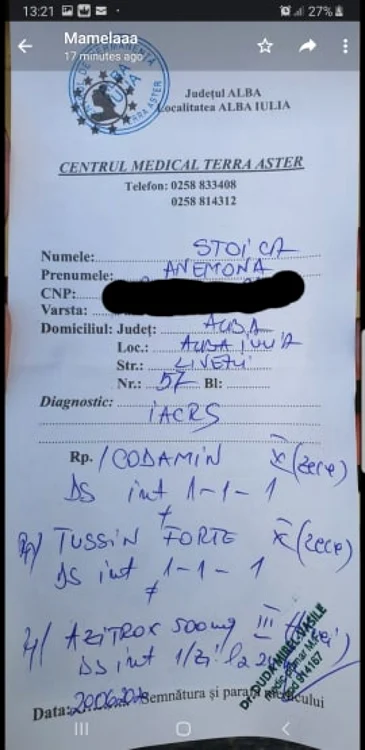 13:21
27%
Mamelaaa
17 minutes ago
ALBA
IULIA
TERRA ASTER
Județul ALBA
Localitatea ALBA IULIA
CENTRUL MEDICAL TERRA ASTER
Telefon: 0258 833408
0258 814312
Numele: STOICA
Prenumele: ANEMONA
CNP:
Varsta:
Domiciliul: Județ: ALBA
Loc.: ALBA IULIA
Str.: LIVEZII
Nr.: 57 Bl:
Diagnostic: IACRS
Rp. / CODAMIN X (zece)
DS int 1-1-1
TUSSIN FORTE X (zece)
DS int 1-1-1
AZITROX 500mg III
DS int 1/zi la
Dr. DUDA MIREL-VASILE
Data: Semnătura și parafa medicului